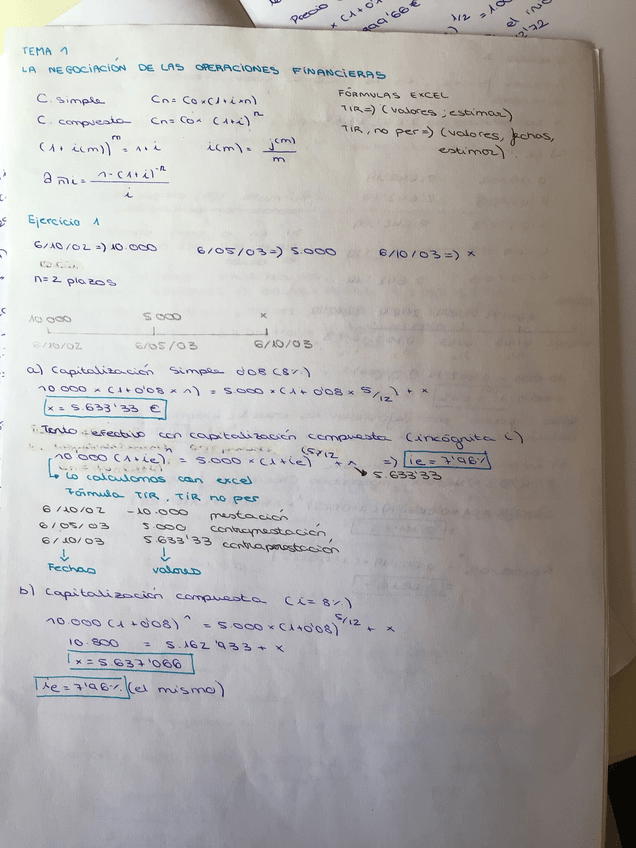 Precio
x (1+0'0
999'66€
1/2
el
TEMA 1
LA NEGOCIACIÓN DE LAS OPERACIONES FINANCIERAS
C. simple Cn = Co × (1+i×n)
C. compuesta Cn = Co × (1+i)^n
(1+i(m))^m = 1+i i(m) = j(m)/m
a n̅i = 1-(1+i)^-n / i
FÓRMULAS EXCEL
TIR => (valores; estimar)
TIR, no per => (valores, fechas, estimar).
Ejercicio 1
6/10/02 => 10.000 6/05/03 => 5.000 6/10/03 => x
n = 2 plazos
10 000 5 000 x
6/10/02 6/05/03 6/10/03
a) Capitalización simple 0'08 (8%)
10.000 × (1+0'08 × 1) = 5.000 × (1+0'08 × 5/12) + x
x = 5.633'33 €
Tanto efectivo con capitalización compuesta (incógnita i)
10 000 (1+ie)^1 = 5.000 × (1+ie)^(5/12) + x => ie = 7'96%
5.633'33
Lo calculamos con excel
Fórmula TIR, TIR no per
6/10/02 -10.000 prestación
6/05/03 5.000 contraprestación
6/10/03 5.633'33 contraprestación
Fechas valores
b) Capitalización compuesta (i = 8%)
10.000 (1+0'08)^1 = 5.000 × (1+0'08)^5/12 + x
10.800 = 5.162'933 + x
x = 5.637'066
ie = 7'96% (el mismo)